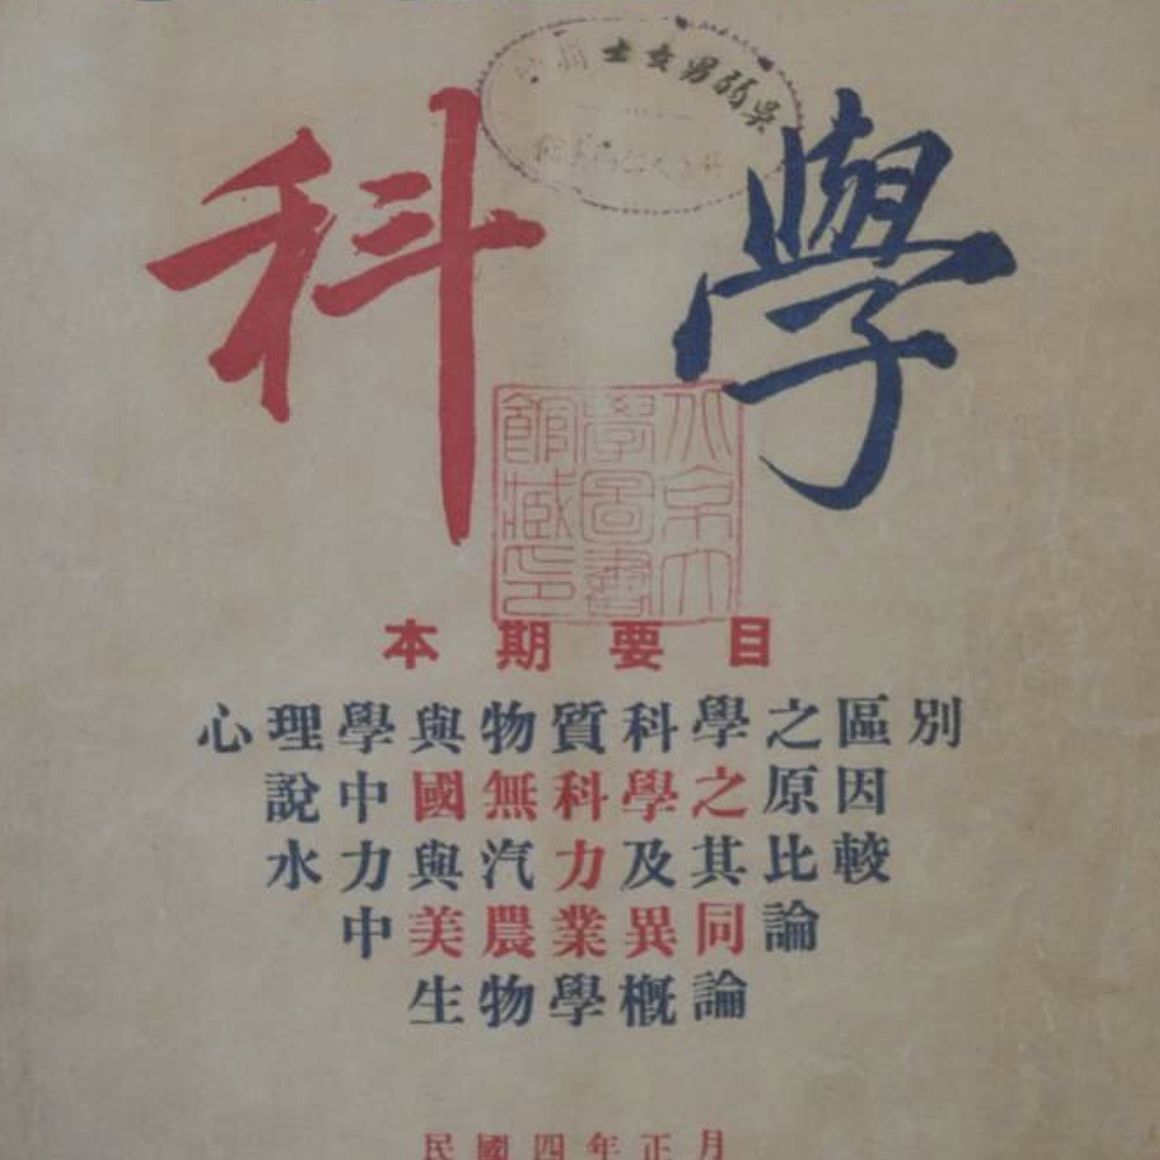 科學
吳弱男女士
北京大
學圖書
館藏印
本期要目
心理學與物質科學之區別
說中國無科學之原因
水力與汽力及其比較
中美農業異同論
生物學概論
民國四年正月